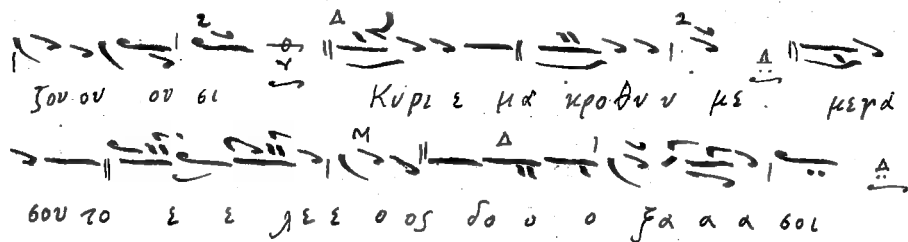 ζου ου ου σι Κύριε μα κροθυ υ με. μεγά
σου το ε ε λεε ο ος δο υ ο ξα α α σοι